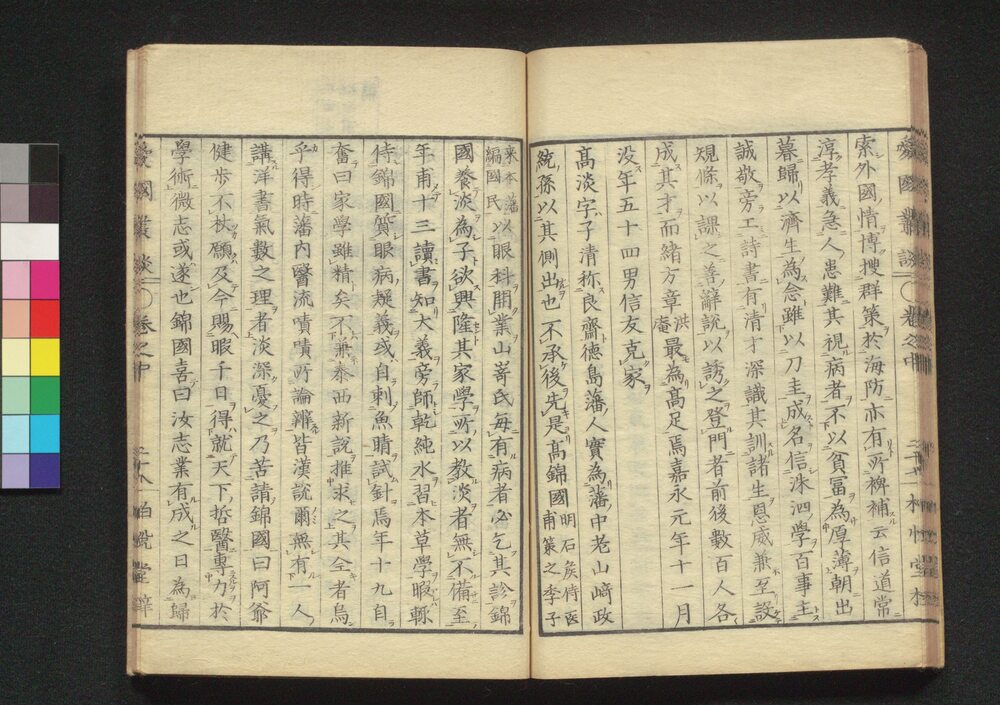 索外國情博搜群策於海防亦有所裨補云信道常
淳孝義急人患難其視病者不以貧冨為厚薄朝出
暮歸以濟生為念雖以刀圭成名信洙泗學百事主
誠敬旁工詩書有清才深識其訓諸生恩威兼至設
規條以課之善辭説以誘之登門者前後數百人各
成其才而緒方章洪庵最為高足焉嘉永元年十一月
没年五十四男信友克家
高淡字子清称良齋徳島藩人實為藩中老山﨑政
統孫以其側出也不承後先是高錦國甫明石侯侍医策之季子
來本藩編國民以眼科開業山嵜氏毎有病者必乞其診錦
國養淡為子欲興隆其家學所以教淡者無不備至
年甫十三讀書知大義旁師乾純水習本草學暇輙
侍錦國質眼病疑義或自刺魚睛試針焉年十九自
奮曰家學雖精矣不兼泰西新説推求之其全者烏
乎得時藩内醫流嘖嘖所論難皆漢説爾無有一人
講洋書氣數之理者淡深憂之乃苦請錦國曰阿爺
健歩不杖願及今賜暇千日得就天下哲醫專力於
學術微志或遂也錦國喜曰汝志業有成之日為歸